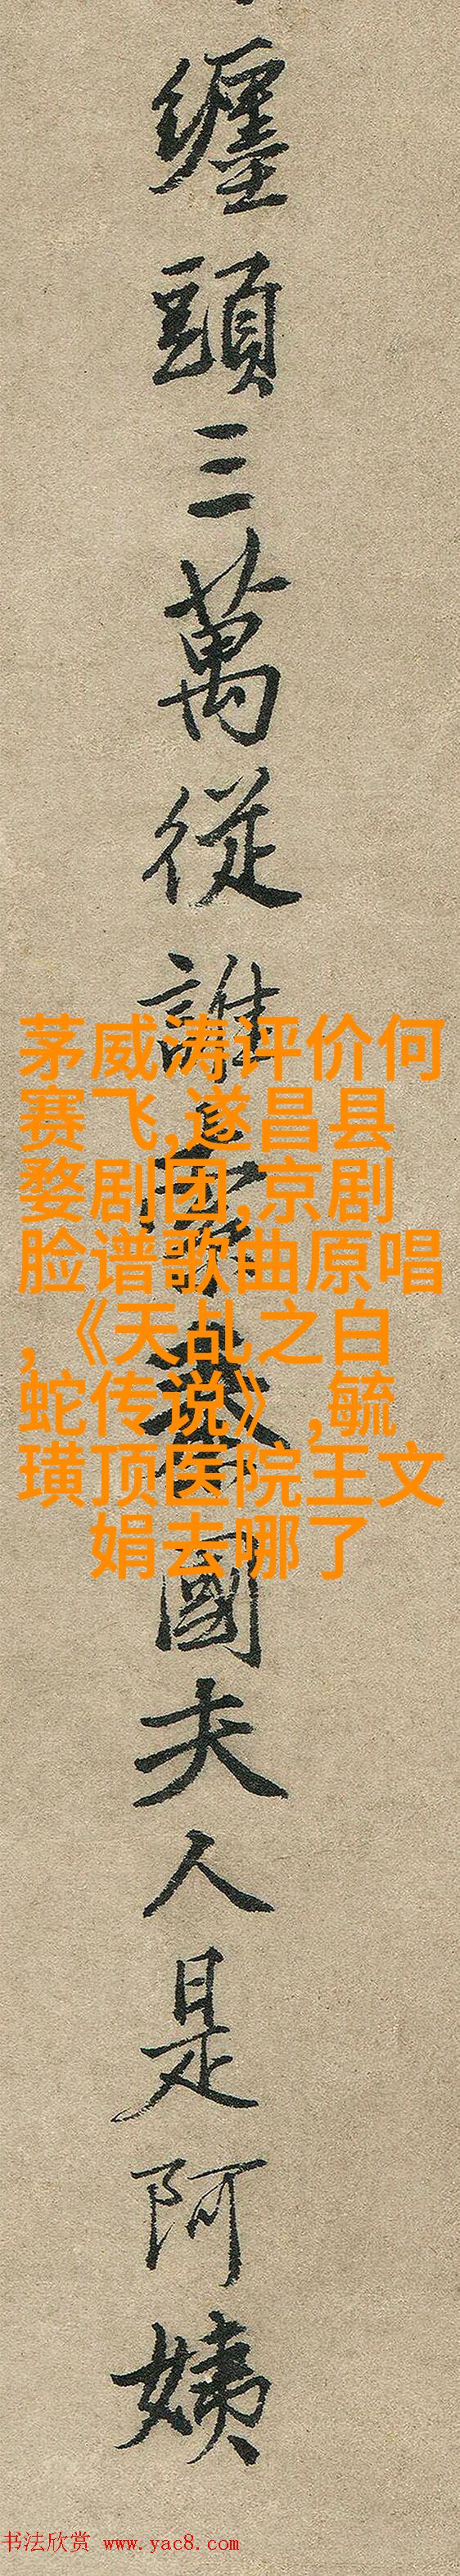 纏頭三萬從誰國夫人是阿姨
茅威涛评价何
赛飞,遂昌县
婺剧团,京剧
脸谱歌曲原唱
,《天乩之白
蛇传说》,毓
璜顶医院王文
娟去哪了
书法欣赏 www.yac8.com